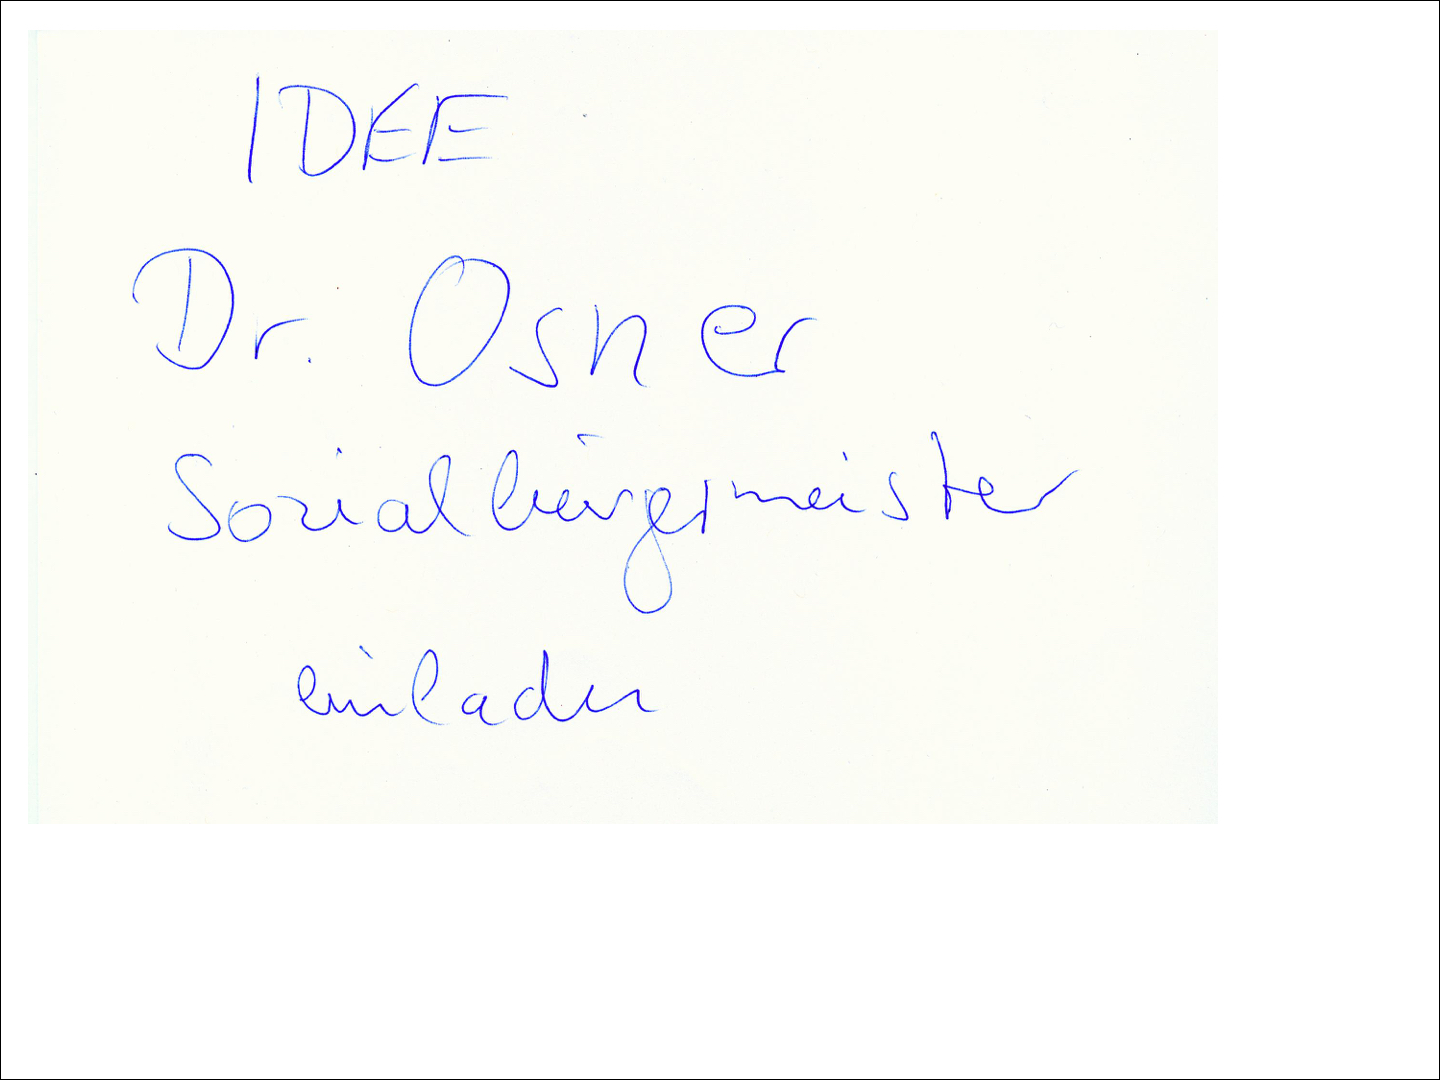 IDEE
Dr. Osner
Sozialbürgermeister
einladen